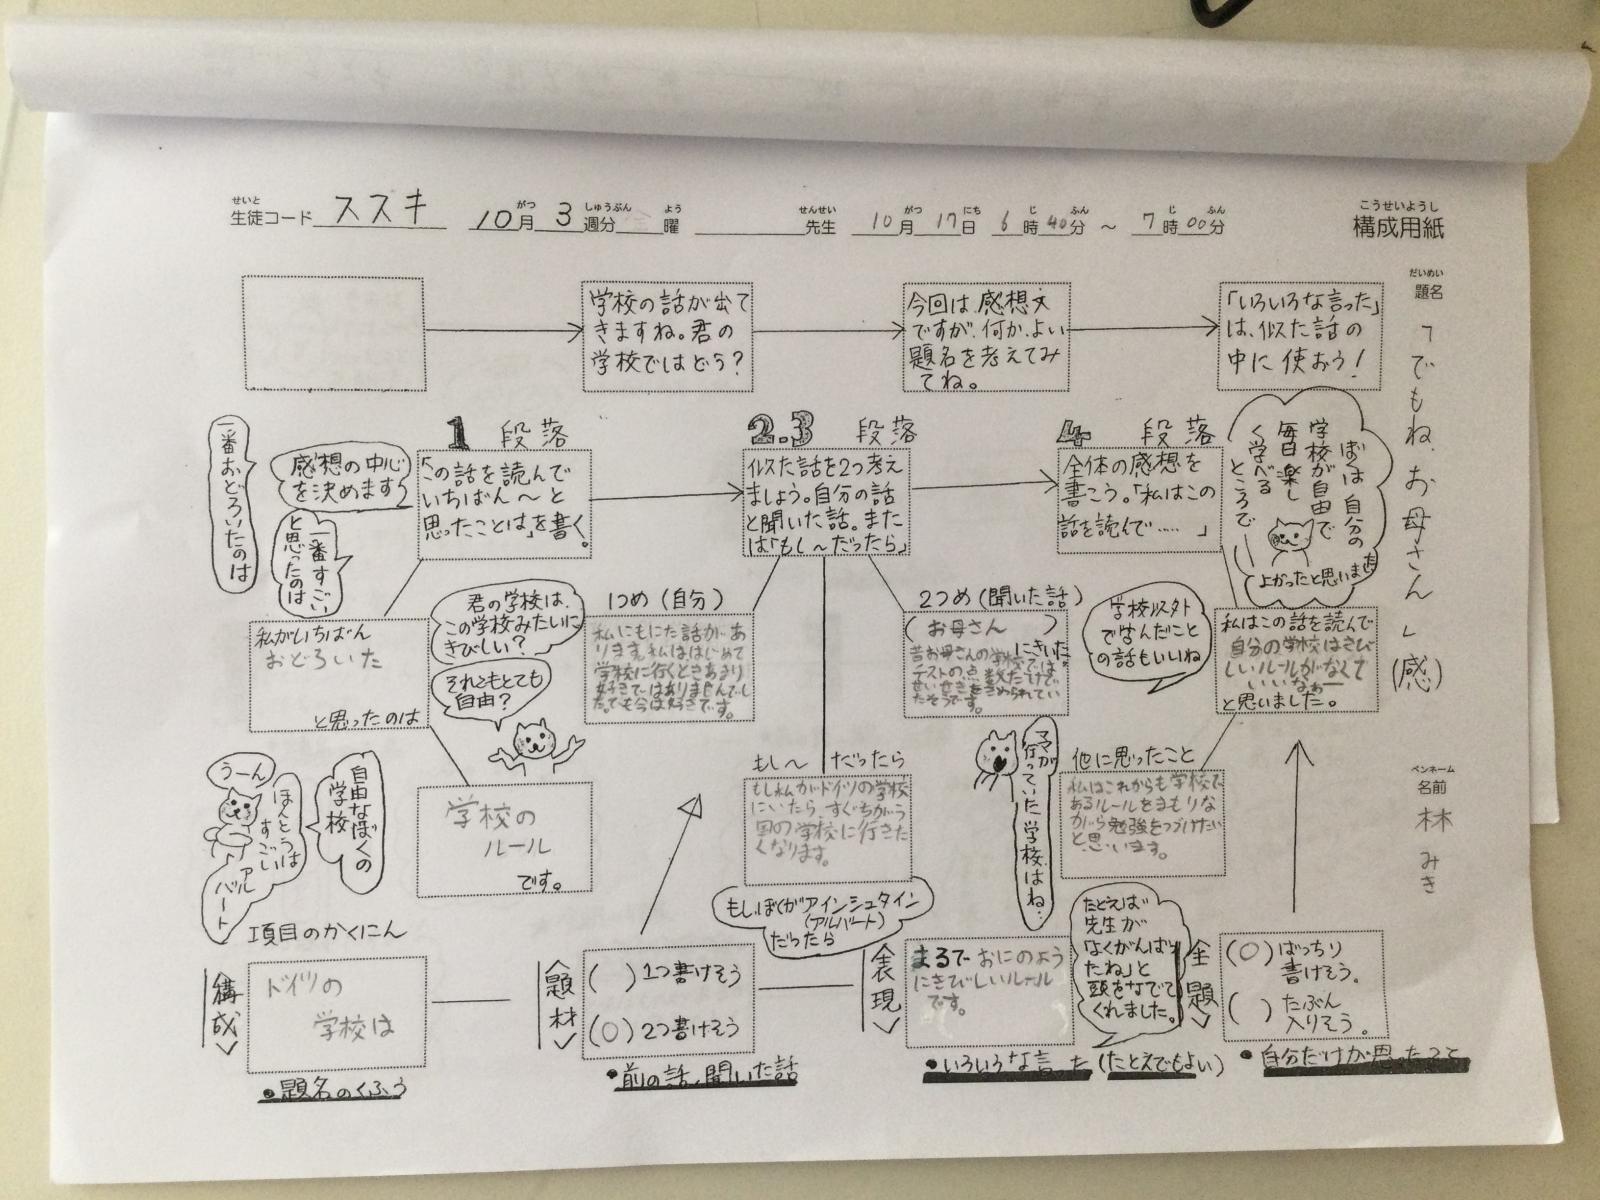 生徒コード ススキ 10月 3週分 曜 先生 10月17日 6時40分 ～ 7時00分
せいと がつ しゅうぶん よう せんせい がつ にち じ ふん じ ふん
こうせいようし
構成用紙
だいめい
題名
「でもね、お母さん」(感)
ペンネーム
名前
林 みき
学校の話が出て
きますね。君の
学校ではどう?
今回は、感想文
ですが、何か、よい
題名を考えてみ
てね。
「いろいろな言った」
は、似た話の
中に使おう!
1 段落
「この話を読んで
いちばん〜と
思ったことは」を書く。
感想の中心
を決めます
一番おどろいたのは
一番すごい
と思ったのは
2.3 段落
似た話を2つ考え
ましょう。自分の話
と聞いた話。また
は「もし〜だったら」
4 段落
全体の感想を
書こう。「私はこの
話を読んで……」
ぼくは自分の
学校が自由で
毎日楽し
く学べる
ところで
よかったと思いました
私がいちばん
おどろいた
と思ったのは
学校の
ルール
です。
君の学校は、
この学校みたいに
きびしい?
それともとても
自由?
1つめ(自分)
私にもにた話があ
ります。私ははじめて
学校に行くときあまり
好きではありませんでし
た。でも今は好きです。
2つめ(聞いた話)
(お母さん)にきいた。
昔お母さんの学校では
テストの点数だけで
せいせきをきめられてい
たそうです。
学校以外
で学んだこと
の話もいいね
私はこの話を読んで
自分の学校はきび
しいルールがなくて
いいなぁー
と思いました。
うーん
ほんとうは
すごい
アル
バート
自由なぼくの
学校
もし〜 だったら
もし私がドイツの学校
にいたら、すぐちがう
国の学校に行きた
くなります。
もしぼくがアインシュタイン
(アルバート)
だったら
ママが
行っていた学校はね…
他に思ったこと
私はこれからも学校で
あるルールをまもりな
がら勉強をつづけたい
と思います。
項目のかくにん
構成
ドイツの
学校は
●題名のくふう
題材
( )1つ書けそう
(○)2つ書けそう
●前の話、聞いた話
表現
まるで おにのよう
にきびしいルール
です。
●いろいろな言った(たとえでもよい)
たとえば
先生が
「よくがんばっ
たね」と
頭をなでて
くれました。
主題
(○)ばっちり
書けそう。
( )たぶん
入りそう。
●自分だけが思ったこと